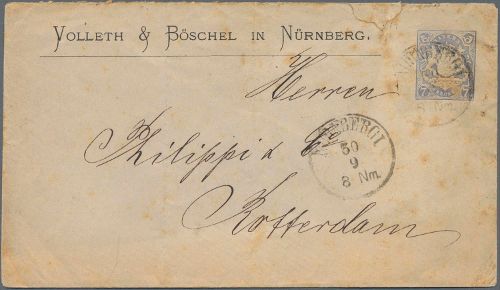 VOLLETH & BÖSCHEL IN NÜRNBERG.
Herren
Philippi & C
Rotterdam
30
9
8 Nm.